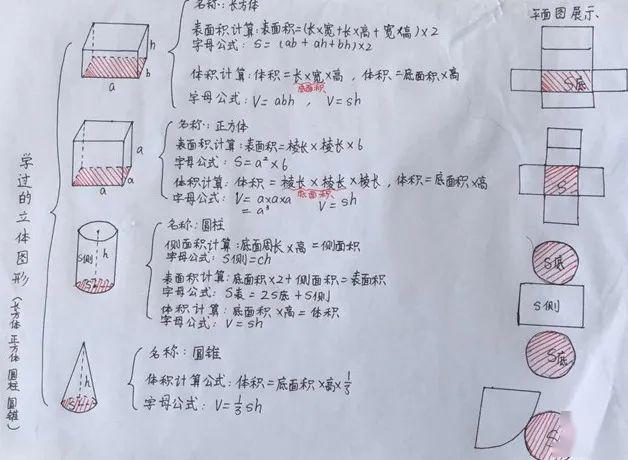 学过的立体图形
（长方体 正方体 圆柱 圆锥）
名称：长方体
表面积计算：表面积=(长×宽+长×高+宽×高)×2
字母公式：S=(ab+ah+bh)×2
体积计算：体积=长×宽×高，体积=底面积×高
底面积
字母公式：V=abh，V=sh
h
b
a
名称：正方体
表面积计算：表面积=棱长×棱长×6
字母公式：S=a²×6
体积计算：体积=棱长×棱长×棱长，体积=底面积×高
底面积
字母公式：V=a×a×a V=sh
=a³
a
a
a
名称：圆柱
侧面积计算：底面周长×高=侧面积
字母公式：S侧=ch
表面积计算：底面积×2+侧面积=表面积
字母公式：S表=2S底+S侧
体积计算：底面积×高=体积
字母公式：V=sh
S侧
h
名称：圆锥
体积计算公式：体积=底面积×高×1/3
字母公式：V=1/3sh
h
平面图展示
S底
S
S底
S侧
S底
S